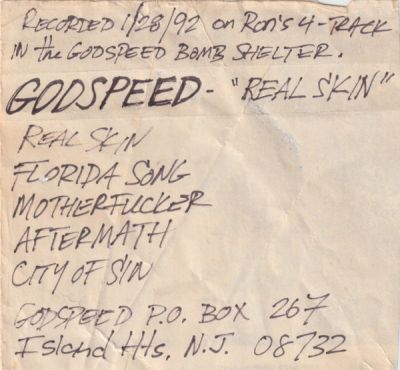 RECORDED 1/28/92 on Ron's 4-TRACK
IN the GODSPEED BOMB SHELTER.
GODSPEED - "REAL SKIN"
REAL SKIN
FLORIDA SONG
MOTHERFUCKER
AFTERMATH
CITY OF SIN
GODSPEED P.O. BOX 267
Island Hts, N.J. 08732